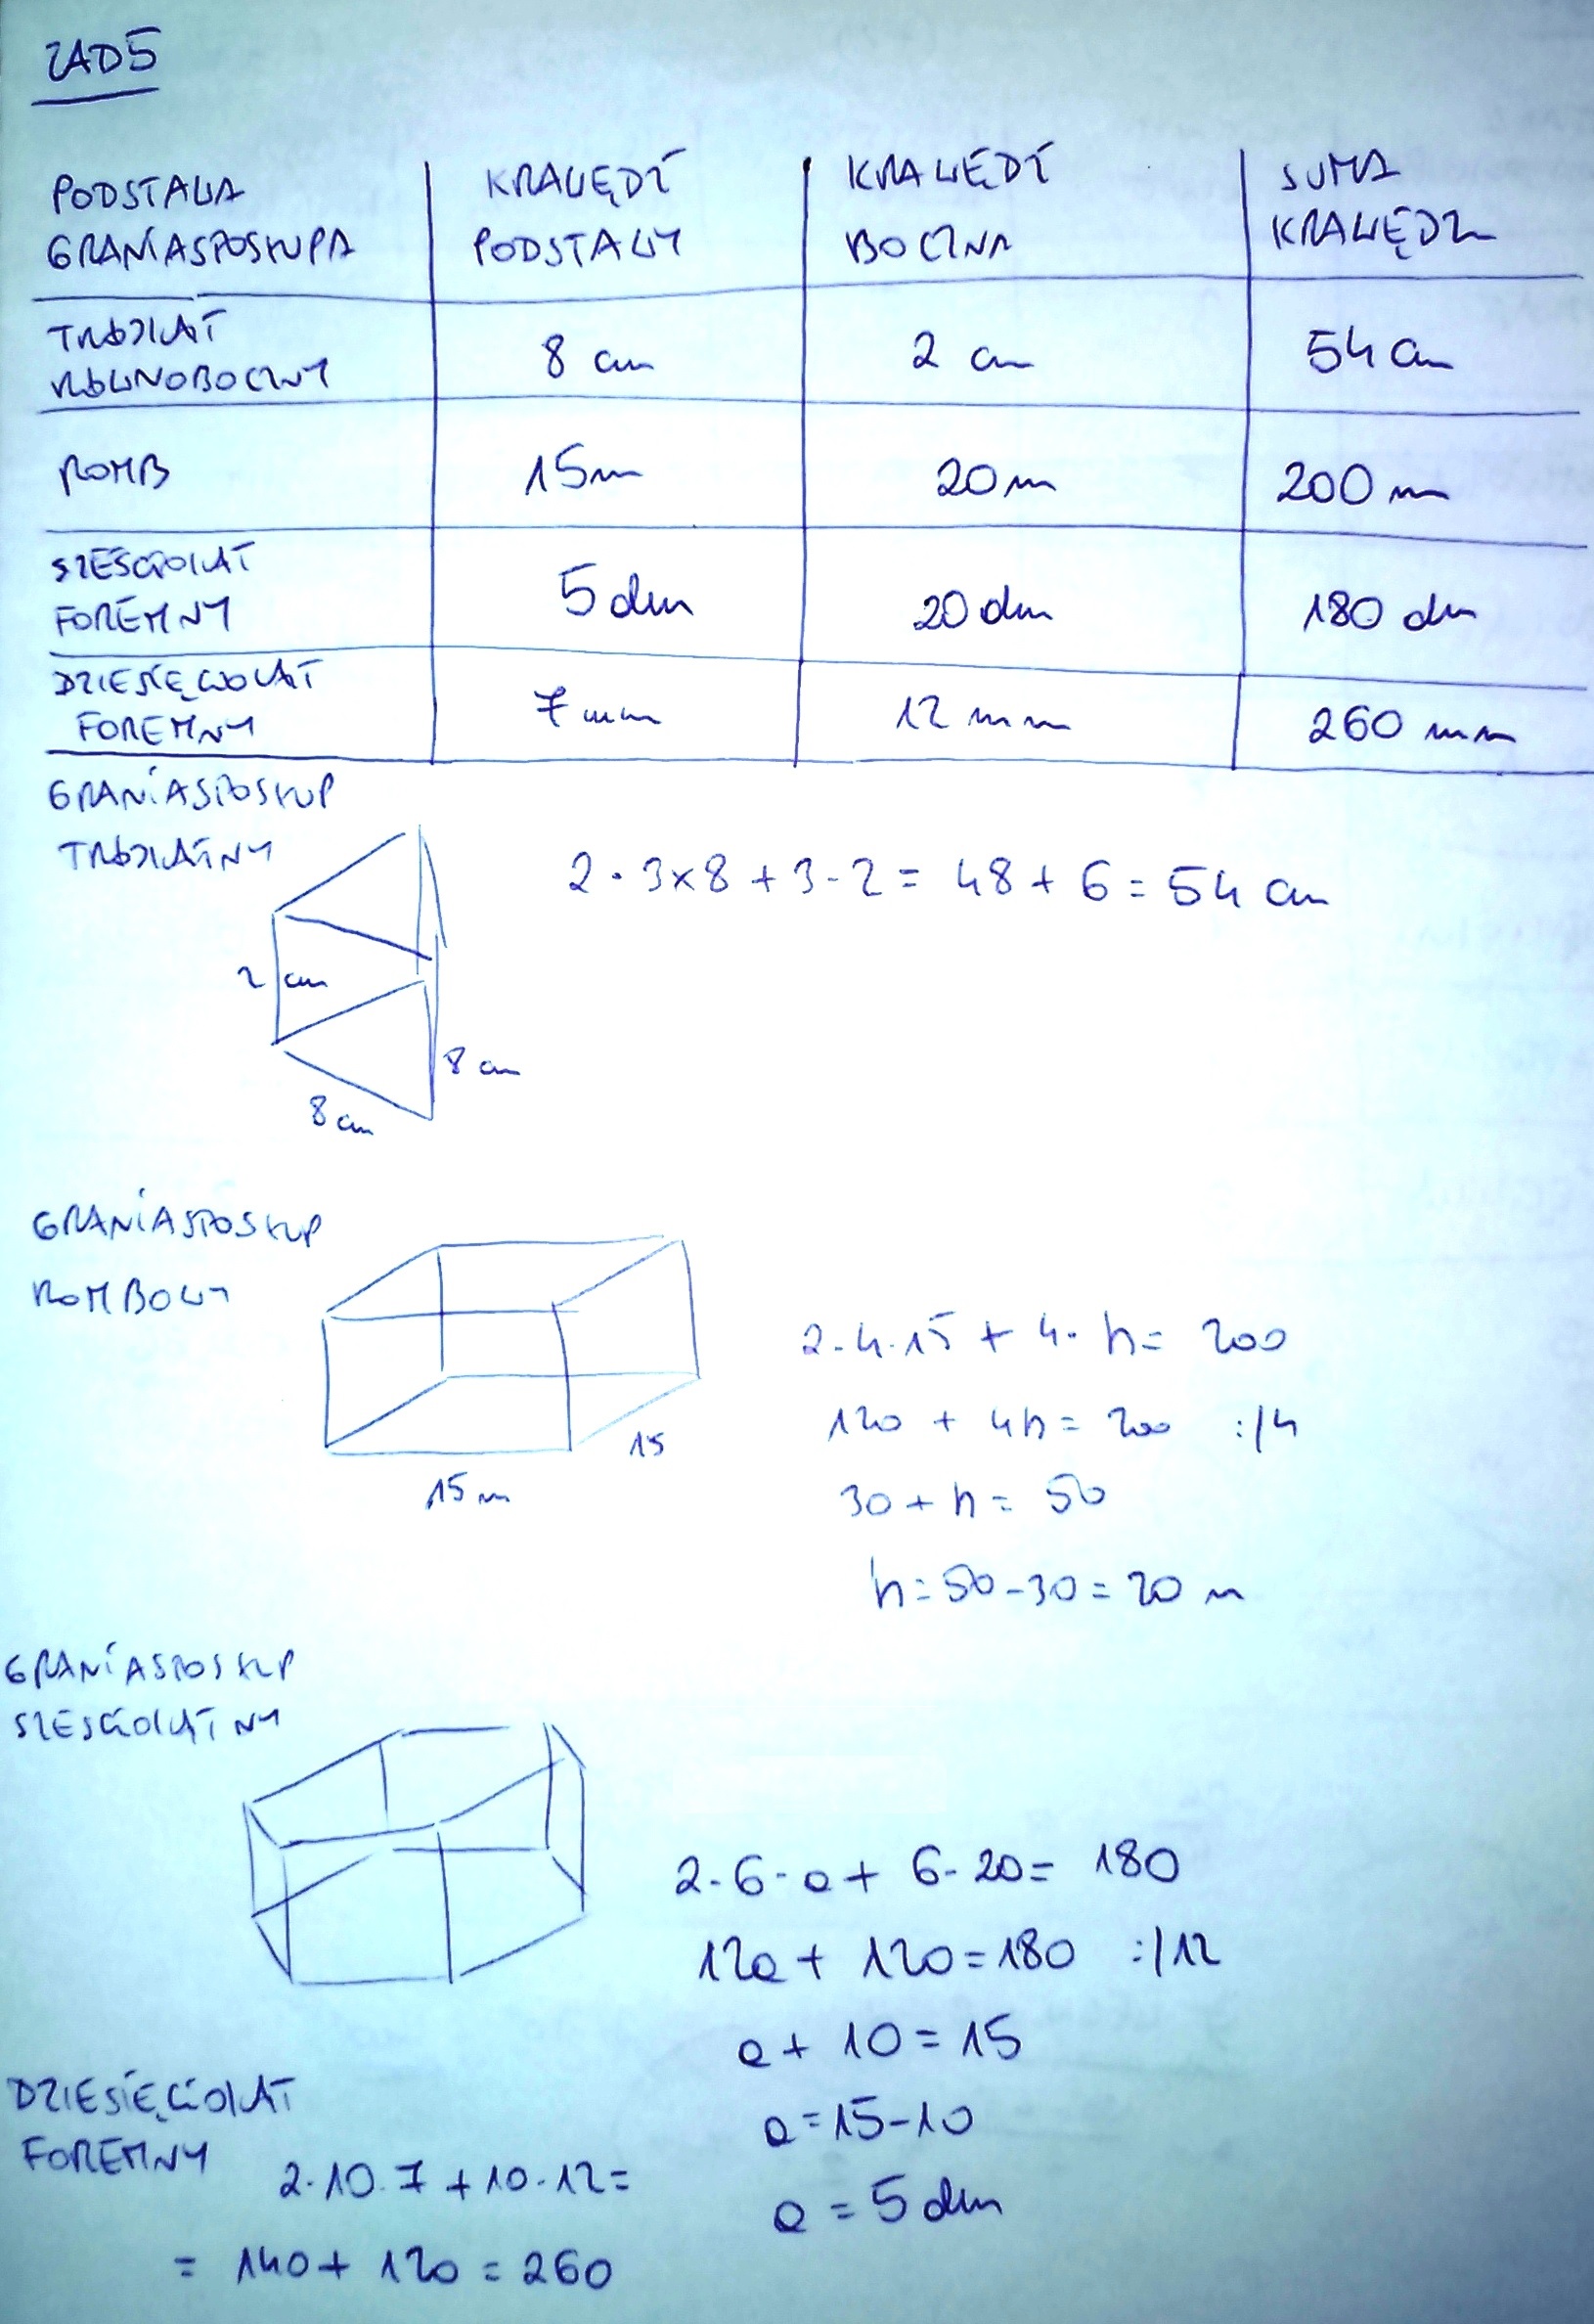 ZAD5
PODSTAWA GRANIASTOSŁUPA | KRAWĘDŹ PODSTAWY | KRAWĘDŹ BOCZNA | SUMA KRAWĘDZI
TRÓJKĄT RÓWNOBOCZNY | 8 cm | 2 cm | 54 cm
ROMB | 15 m | 20 m | 200 m
SZEŚCIOKĄT FOREMNY | 5 dm | 20 dm | 180 dm
DZIESIĘCIOKĄT FOREMNY | 7 mm | 12 mm | 260 mm
GRANIASTOSŁUP
TRÓJKĄTNY
2 · 3 x 8 + 3 · 2 = 48 + 6 = 54 cm
2 cm
8 cm
8 cm
GRANIASTOSŁUP
ROMBOWY
2 · 4 · 15 + 4 · h = 200
120 + 4h = 200 :/4
15
15 m
30 + h = 50
h = 50 - 30 = 20 m
GRANIASTOSŁUP
SZEŚCIOKĄTNY
2 · 6 · a + 6 · 20 = 180
12a + 120 = 180 :/12
a + 10 = 15
a = 15 - 10
a = 5 dm
DZIESIĘCIOKĄT
FOREMNY
2 · 10 · 7 + 10 · 12 =
= 140 + 120 = 260